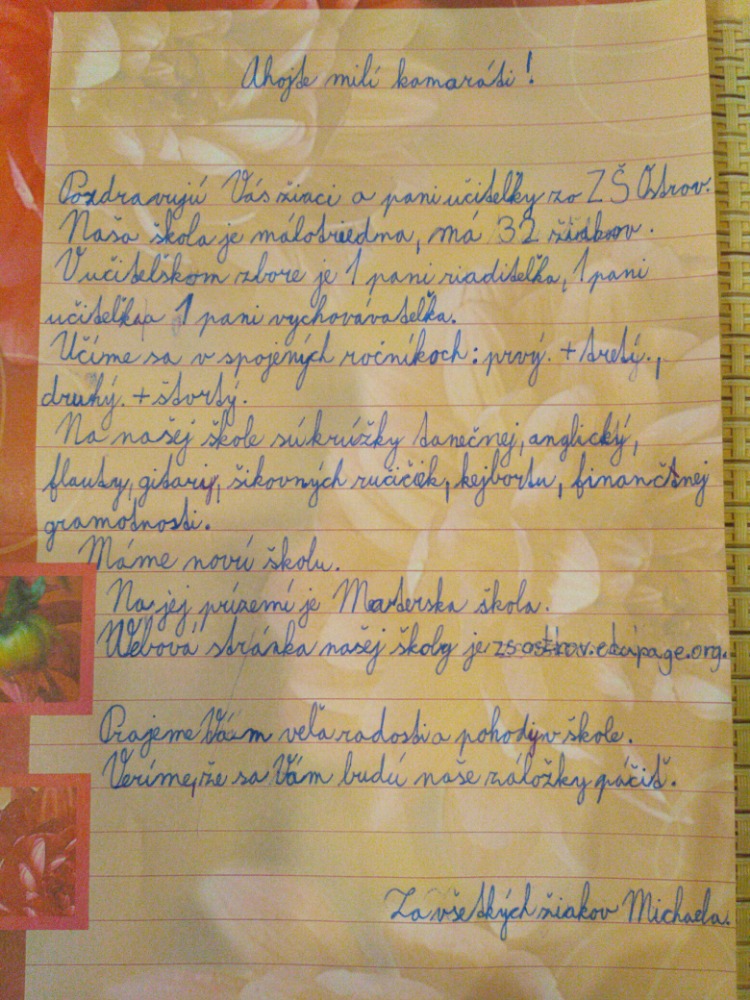 Ahojte milí kamaráti!
Pozdravujú Vás žiaci a pani učiteľky zo ZŠ Ostrov.
Naša škola je málotriedna, má 32 žiakov.
V učiteľskom zbore je 1 pani riaditeľka, 1 pani
učiteľka a 1 pani vychovávateľka.
Učíme sa v spojených ročníkoch: prvý. + tretý.,
druhý. + štvrtý.
Na našej škole sú krúžky tanečnej, anglický,
flauty, gitary, šikovných ručičiek, kejbortu, finančnej
gramotnosti.
Máme novú školu.
Na jej prízemí je Materska škola.
Webová stránka našej školy je zsostrov.edupage.org.
Prajeme Vám veľa radosti a pohody v škole.
Veríme, že sa Vám budú naše záložky páčiť.
Za všetkých žiakov Michaela.